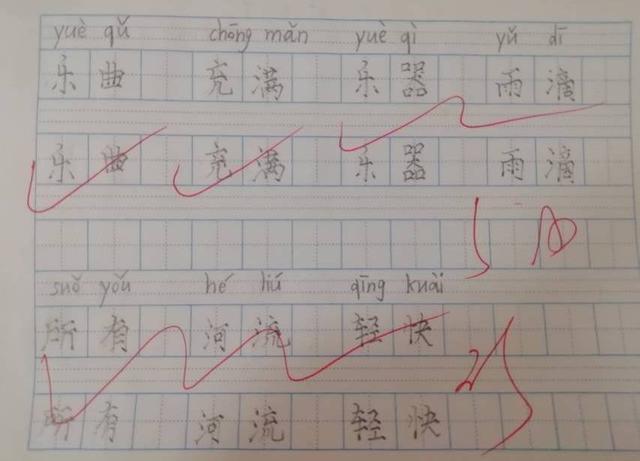 yuè qǔ chōng mǎn yuè qì yǔ dī
乐曲 充满 乐器 雨滴
乐曲 充满 乐器 雨滴
suǒ yǒu hé liú qīng kuài
所有 河流 轻快
所有 河流 轻快